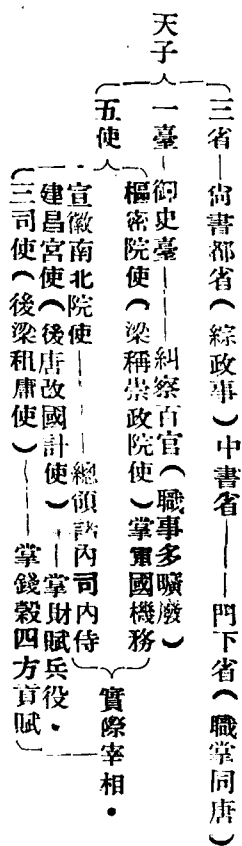 天子
三省—尙書都省(綜政事)中書省——門下省(職掌同唐)
一臺—御史臺——糾察百官(職事多曠廢)
五使
樞密院使(梁稱崇政院使)掌軍國機務
宣徽南北院使———總領諸內司內侍
建昌宮使(後唐改國計使)—掌財賦兵役.
三司使(後梁租庸使)——掌錢穀四方貢賦
實際宰相.